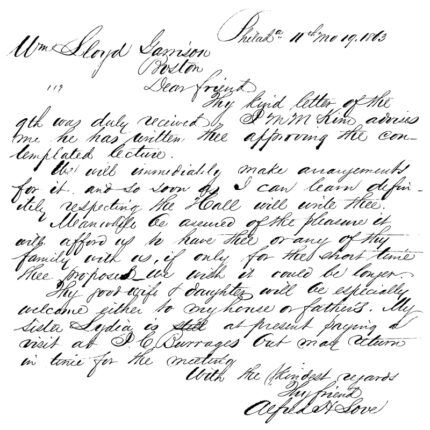 Philada. 11th mo 19. 1863
Wm Lloyd Garrison
Boston
Dear friend
Thy kind letter of the
9th was duly received & J M McKim advises
me he has written thee approving the con-
templated lecture.
We will immediately make arrangements
for it and so soon as I can learn defin-
itely respecting the Hall will write thee.
Meanwhile be assured of the pleasure it
will afford us to have thee or any of thy
family with us, if only for the short time
thee proposed we wish it could be longer.
Thy good wife & daughter will be especially
welcome either to my house or father's. My
Sister Lydia is still at present paying a
visit at J. C. Burrages but may return
in time for the meeting
With the kindest regards
Thy friend
Alfred H Love